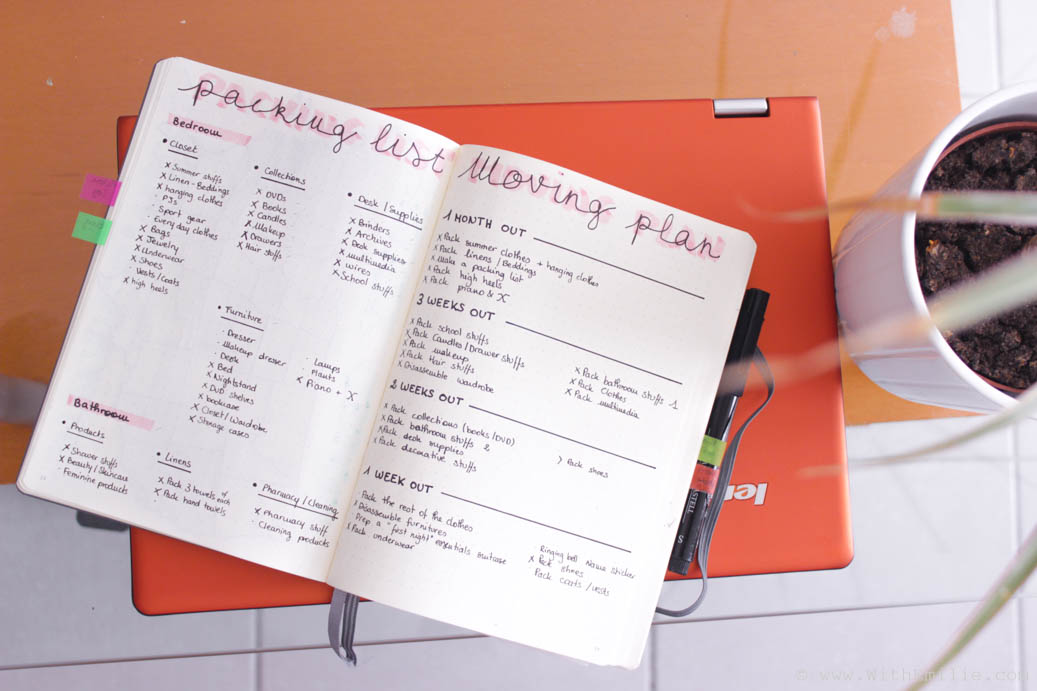 packing list
Bedroom
• Closet
x Summer stuffs
x Linen-Beddings
x hanging clothes
• PJs
• Sport gear
• Everyday clothes
x Bags
x Jewelry
x Underwear
x Shoes
• Vests/Coats
x high heels
• Collections
x DVDs
x Books
x Candles
x Makeup
x Drawers
x Hair stuffs
• Desk/Supplies
x Binders
x Archives
x Desk supplies
x multimedia
x wires
x School stuffs
• Furniture
• Dresser
• Makeup dresser
• Desk
x Bed
x Nightstand
x DVD shelves
x bookcase
x Closet/Wardrobe
x Storage cases
• Lamps
• Plants
x Piano + X
Bathroom
• Products
x Shower stuffs
x Beauty/Skincare
• Feminine products
• Linens
x Pack 3 towels of each
x Pack hand towels
• Pharmacy/Cleaning
x Pharmacy stuff
• Cleaning products
Moving plan
1 MONTH OUT
x Pack summer clothes + hanging clothes
x Pack linens/Beddings
x Make a packing list
x Pack high heels
x Pack piano & X
3 WEEKS OUT
x Pack school stuffs
x Pack Candles/Drawer stuffs
x Pack makeup
x Pack Hair stuffs
x Disassemble Wardrobe
x Pack bathroom stuffs 1
x Pack Clothes
x Pack multimedia
2 WEEKS OUT
x Pack collections (books/DVD)
x Pack bathroom stuffs 2
x Pack desk supplies
x Pack decorative stuffs
> Pack shoes
1 WEEK OUT
• Pack the rest of the clothes
x Disassemble furnitures
• Prep a "first night" essentials suitcase
x Pack underwear
Ringing bell Name sticker
x Pack shoes
Pack coats/vests
STELL
S
© www.WithEmilie.com